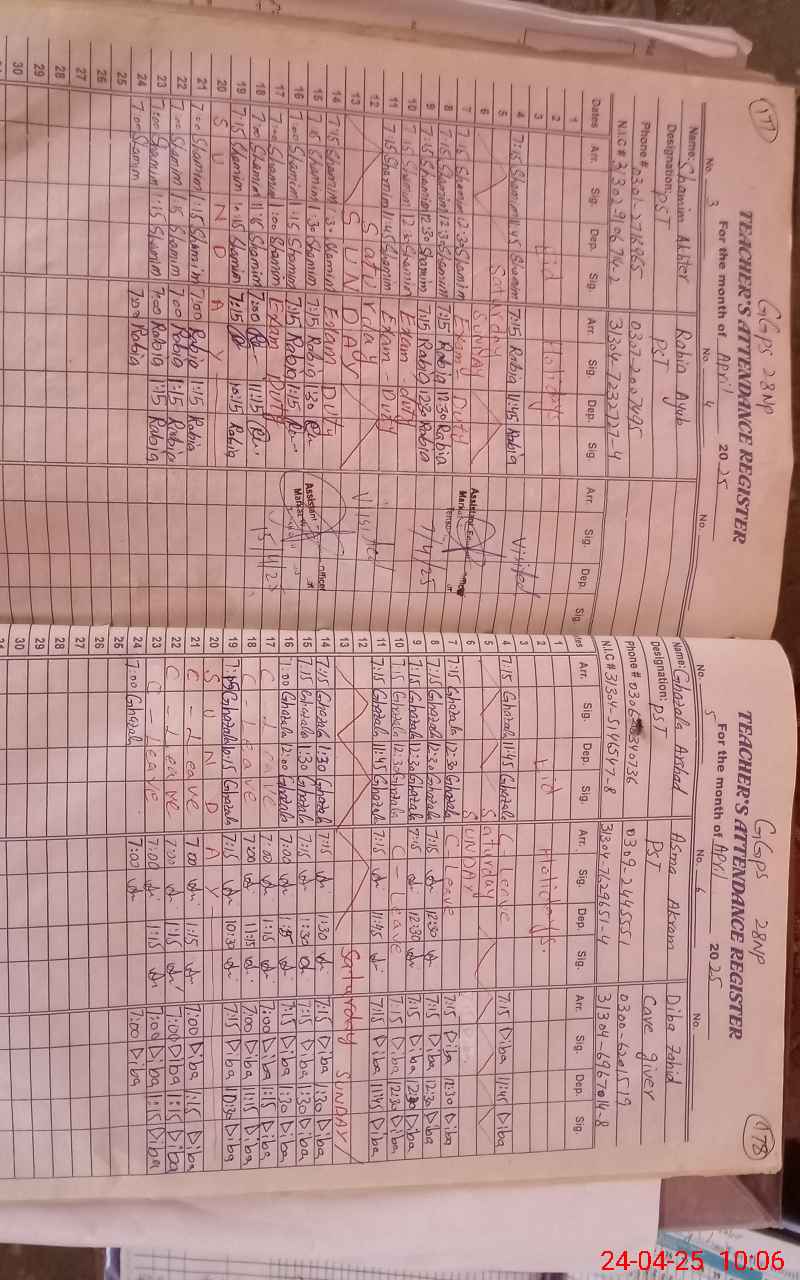 177
GGPS 28NP
TEACHER'S ATTENDANCE REGISTER
No. 3 For the month of April 2025
No. 4 No.
Name: Shamim Akhter Rabia Ayub
Designation: PST PST
Phone #
N.I.C #
Dates Arr. Sig. Dep. Sig. Arr. Sig. Dep. Sig. Arr. Sig. Dep. Sig.
1
2 Eid Holidays
3
4 7:15 Shamim 11:45 Shamim 7:15 Rabia 11:45 Rabia Visited
5 Saturday
6 SUNDAY
7 7:15 Shamim 12:30 Shamim Exam Duty
8 7:15 Shamim 12:30 Shamim 7:15 Rabia 12:30 Rabia
9 7:15 Shamim 12:30 Shamim 7:15 Rabia 12:30 Rabia 7/4/25
10 7:15 Shamim 12:30 Shamim Exam duty
11 7:15 Shamim 11:45 Shamim Exam - Duty
12 Saturday Visited
13 SUNDAY
14 7:15 Shamim 1:30 Shamim Exam Duty
15 7:15 Shamim 1:30 Shamim 7:15 Rabia 1:30
16 7:00 Shamim 1:15 Shamim 7:15 Rabia 1:15
17 7:00 Shamim 1:00 Shamim Exam Duty
18 7:00 Shamim 11:15 Shamim 7:00 11:15
19 7:15 Shamim 10:15 Shamim 7:15 10:15 Rabia
20 SUNDAY
21 7:00 Shamim 1:15 Shamim 7:00 Rabia 1:15 Rabia
22 7:00 Shamim 1:15 Shamim 7:00 Rabia 1:15 Rabia
23 7:00 Shamim 1:15 Shamim 7:00 Rabia 1:15 Rabia
24 7:00 Shamim 7:00 Rabia
25
26
27
28
29
30
178
GGPS 28NP
TEACHER'S ATTENDANCE REGISTER
No. 5 For the month of April 2025
No. 6 No.
Name: Ghazala Arshad Asma Akram Diba Zahid
Designation: PST PST Care giver
Phone #
N.I.C #
Arr. Sig. Dep. Sig. Arr. Sig. Dep. Sig. Arr. Sig. Dep. Sig.
1
2 Eid Holidays.
3
4 7:15 Ghazala 11:45 Ghazala C-Leave 7:15 Diba 11:45 Diba
5 Saturday
6 SUNDAY
7 7:15 Ghazala 12:30 Ghazala C-Leave 7:15 Diba 12:30 Diba
8 7:15 Ghazala 12:30 Ghazala 7:15 12:30 7:15 Diba 12:30 Diba
9 7:15 Ghazala 12:30 Ghazala 7:15 12:30 7:15 Diba 12:30 Diba
10 7:15 Ghazala 12:30 Ghazala C-Leave 7:15 Diba 12:30 Diba
11 7:15 Ghazala 11:45 Ghazala 7:15 11:45 7:15 Diba 11:45 Diba
12
13 Saturday SUNDAY
14 7:15 Ghazala 1:30 Ghazala 7:15 1:30 7:15 Diba 1:30 Diba
15 7:15 Ghazala 1:30 Ghazala 7:15 1:30 7:15 Diba 1:30 Diba
16 7:00 Ghazala 12:00 Ghazala 7:00 7:15 Diba 1:30 Diba
17 C Leave 7:00 1:15 7:00 Diba 1:15 Diba
18 C-Leave 7:00 11:15 7:00 Diba 11:15 Diba
19 Ghazala 10:15 Ghazala 7:15 10:30 7:15 Diba 10:30 Diba
20 SUNDAY
21 C Leave 7:00 1:15 7:00 Diba 1:15 Diba
22 C-Leave 7:00 1:15 7:00 Diba 1:15 Diba
23 C-Leave 7:00 1:15 7:00 Diba 1:15 Diba
24 7:00 Ghazal 7:00 7:00 Diba
25
26
27
28
29
30
24-04-25 10:06